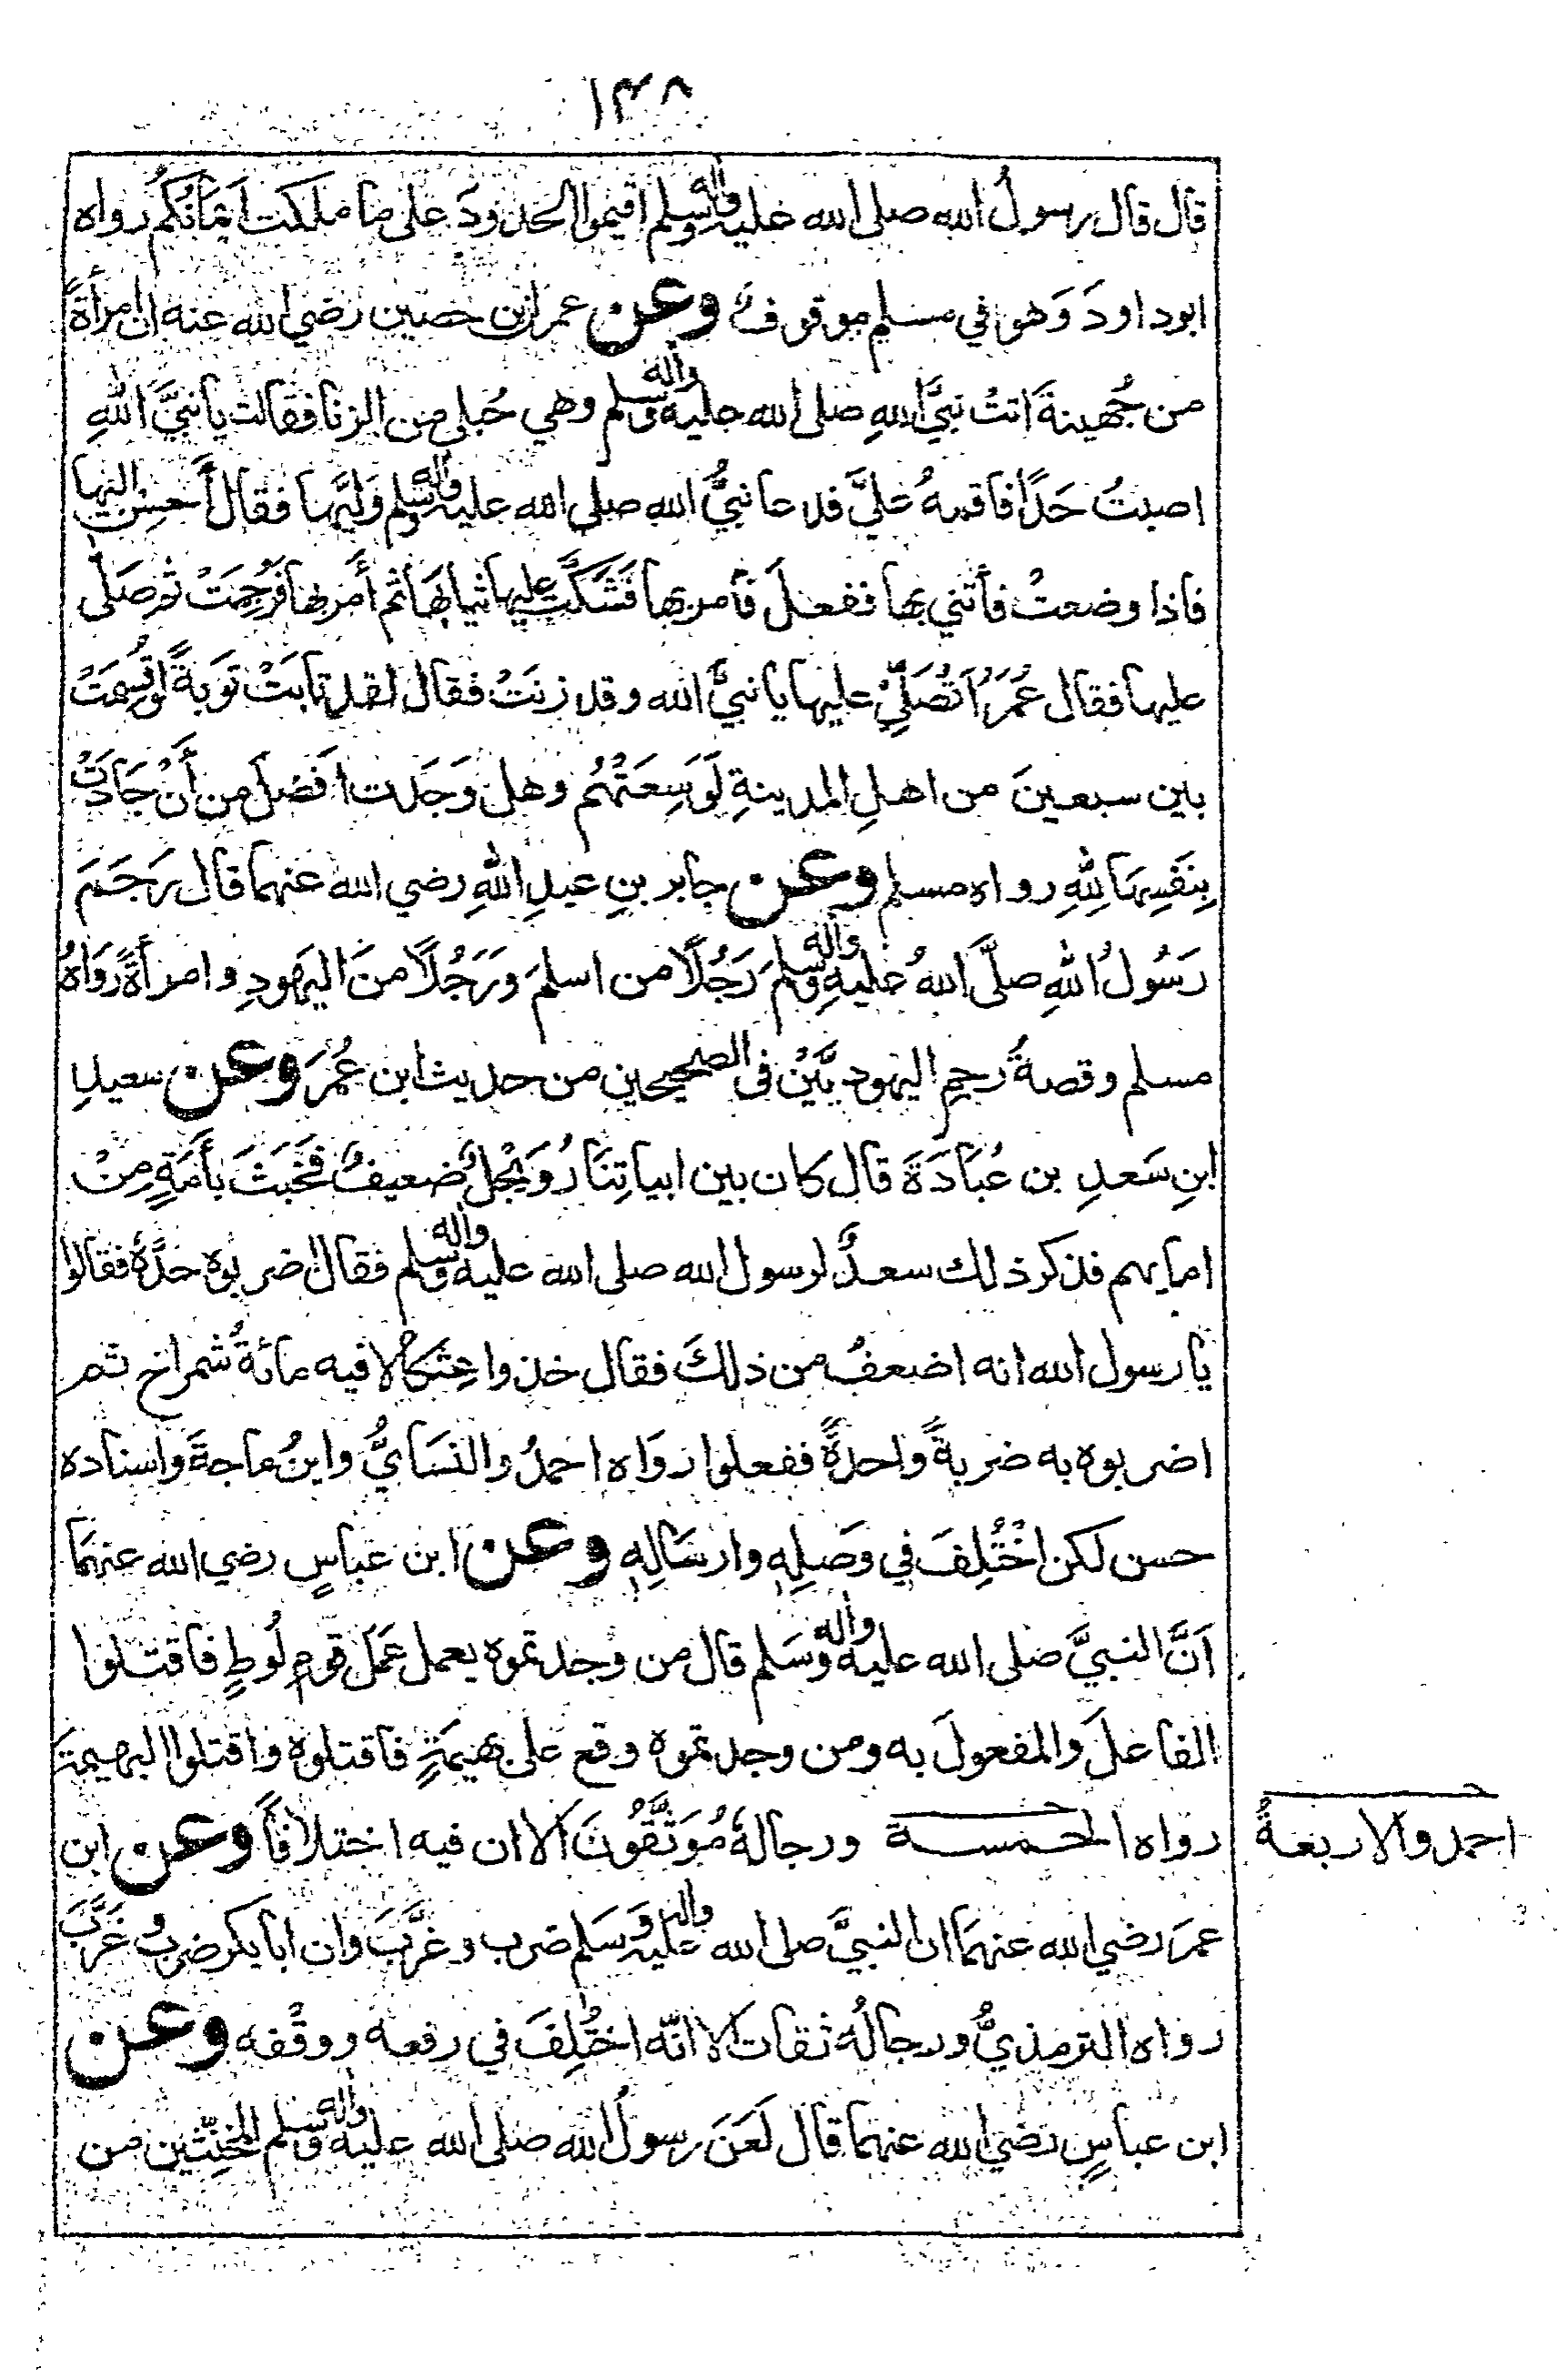 ١٣٨
قال قال رسولُ الله صلى الله عليه واله وسلم اقيموا الحدودَ على ما ملكت اَيمَانُكُم رواه
ابوداودَ وَهو في مسلم موقوفٌ وعن عمران بن حصين رضي الله عنه ان امرأةً
من جُهينةَ اتتْ نبيَّ اللهِ صلى الله عليه واله وسلم وهي حُبلى من الزنا فقالت يا نبيَّ اللهِ
اصبتُ حَدًّا فاقمهُ عليَّ فدعا نبيُّ الله صلى الله عليه واله وسلم وَليَّها فقال أَحسِن اليها
فاذا وضعتْ فأتني بها ففعلَ فأمر بها فَشُكَّتْ عليها ثيابُهَا ثم أَمَر بها فَرُجِمَتْ ثم صَلَّى
عليها فقال عُمَرُ اَتُصَلِّيْ عليها يا نبيَّ الله وقد زنتْ فقال لقد تابَتْ تَوبةً لو قُسِمَتْ
بين سبعينَ من اهلِ المدينةِ لَوَسِعَتْهُم وهل وَجَدت اَفضَلَ من أنْ جَادَتْ
بِنَفسِهَا لِلّٰهِ رواه مسلم وعن جابر بنِ عبدِ اللهِ رضي الله عنهما قال رَجَمَ
رَسُولُ اللهِ صلَّى اللهُ عليهِ واله وسلمَ رَجُلًا من اسلمَ وَرَجُلًا منَ اليهودِ وامرأةً رَوَاهُ
مسلم وقصةُ رجمِ اليهوديَّيْنِ فى الصحيحين من حديث ابن عُمَرَ وعن سعيدِ
ابنِ سَعدِ بن عُبَادَةَ قال كان بين ابياتِنَا رُوَيْجُلٌ ضعيفٌ فَخَبَثَ بأَمَةٍ مِنْ
امايهم فذكر ذلك سعدٌ لرسول الله صلى الله عليه واله وسلم فقال اضربوه حدَّهُ فقالوا
يا رسول الله انه اضعفُ من ذلكَ فقال خذوا عِثكالا فيه مائةُ شمراخ ثم
اضربوه به ضربةً واحدةً ففعلوا رَواه احمدُ والنسَايُّ وابنُ ماجةَ واسناده
حسن لكن اخْتُلِفَ في وَصلِهِ وارسَالِهِ وعن ابن عباسٍ رضي الله عنهمَا
اَنَّ النبيَّ صلى الله عليه واله وسَلم قال من وجدتموه يعمل عَمَلَ قومِ لُوطٍ فاقتلوا
الفاعلَ والمفعولَ به ومن وجدتموه وقع على بهيمَةٍ فاقتلوه واقتلوا البهيمة
رواه الخمسة ورجالهُ مُوَثَّقُونَ الا ان فيه اختلافاً وعن ابن
احمد والاربعةُ
عمرَ رضي الله عنهمَا ان النبيَّ صلى الله عليه واله وسَلم ضرب وغَرَّبَ وان ابا بكر ضربَ وغَرَّبَ
رواه الترمذيُّ ورجالُه ثقات الا انّه اختُلِفَ في رفعه ووقفه وعن
ابن عباسٍ رضي الله عنهما قال لَعَنَ رسولُ الله صلى الله عليه واله وسلم المخنِّثين من